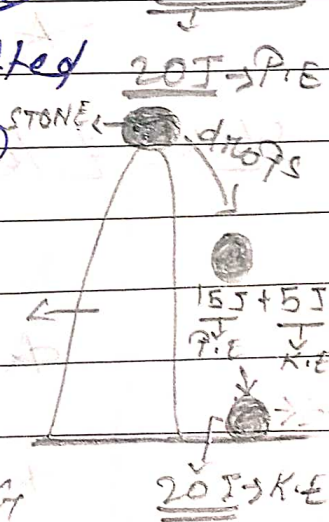 ted
20J → P.E
STONE ← drops
15J + 5J
P.E K.E
20J → K.E